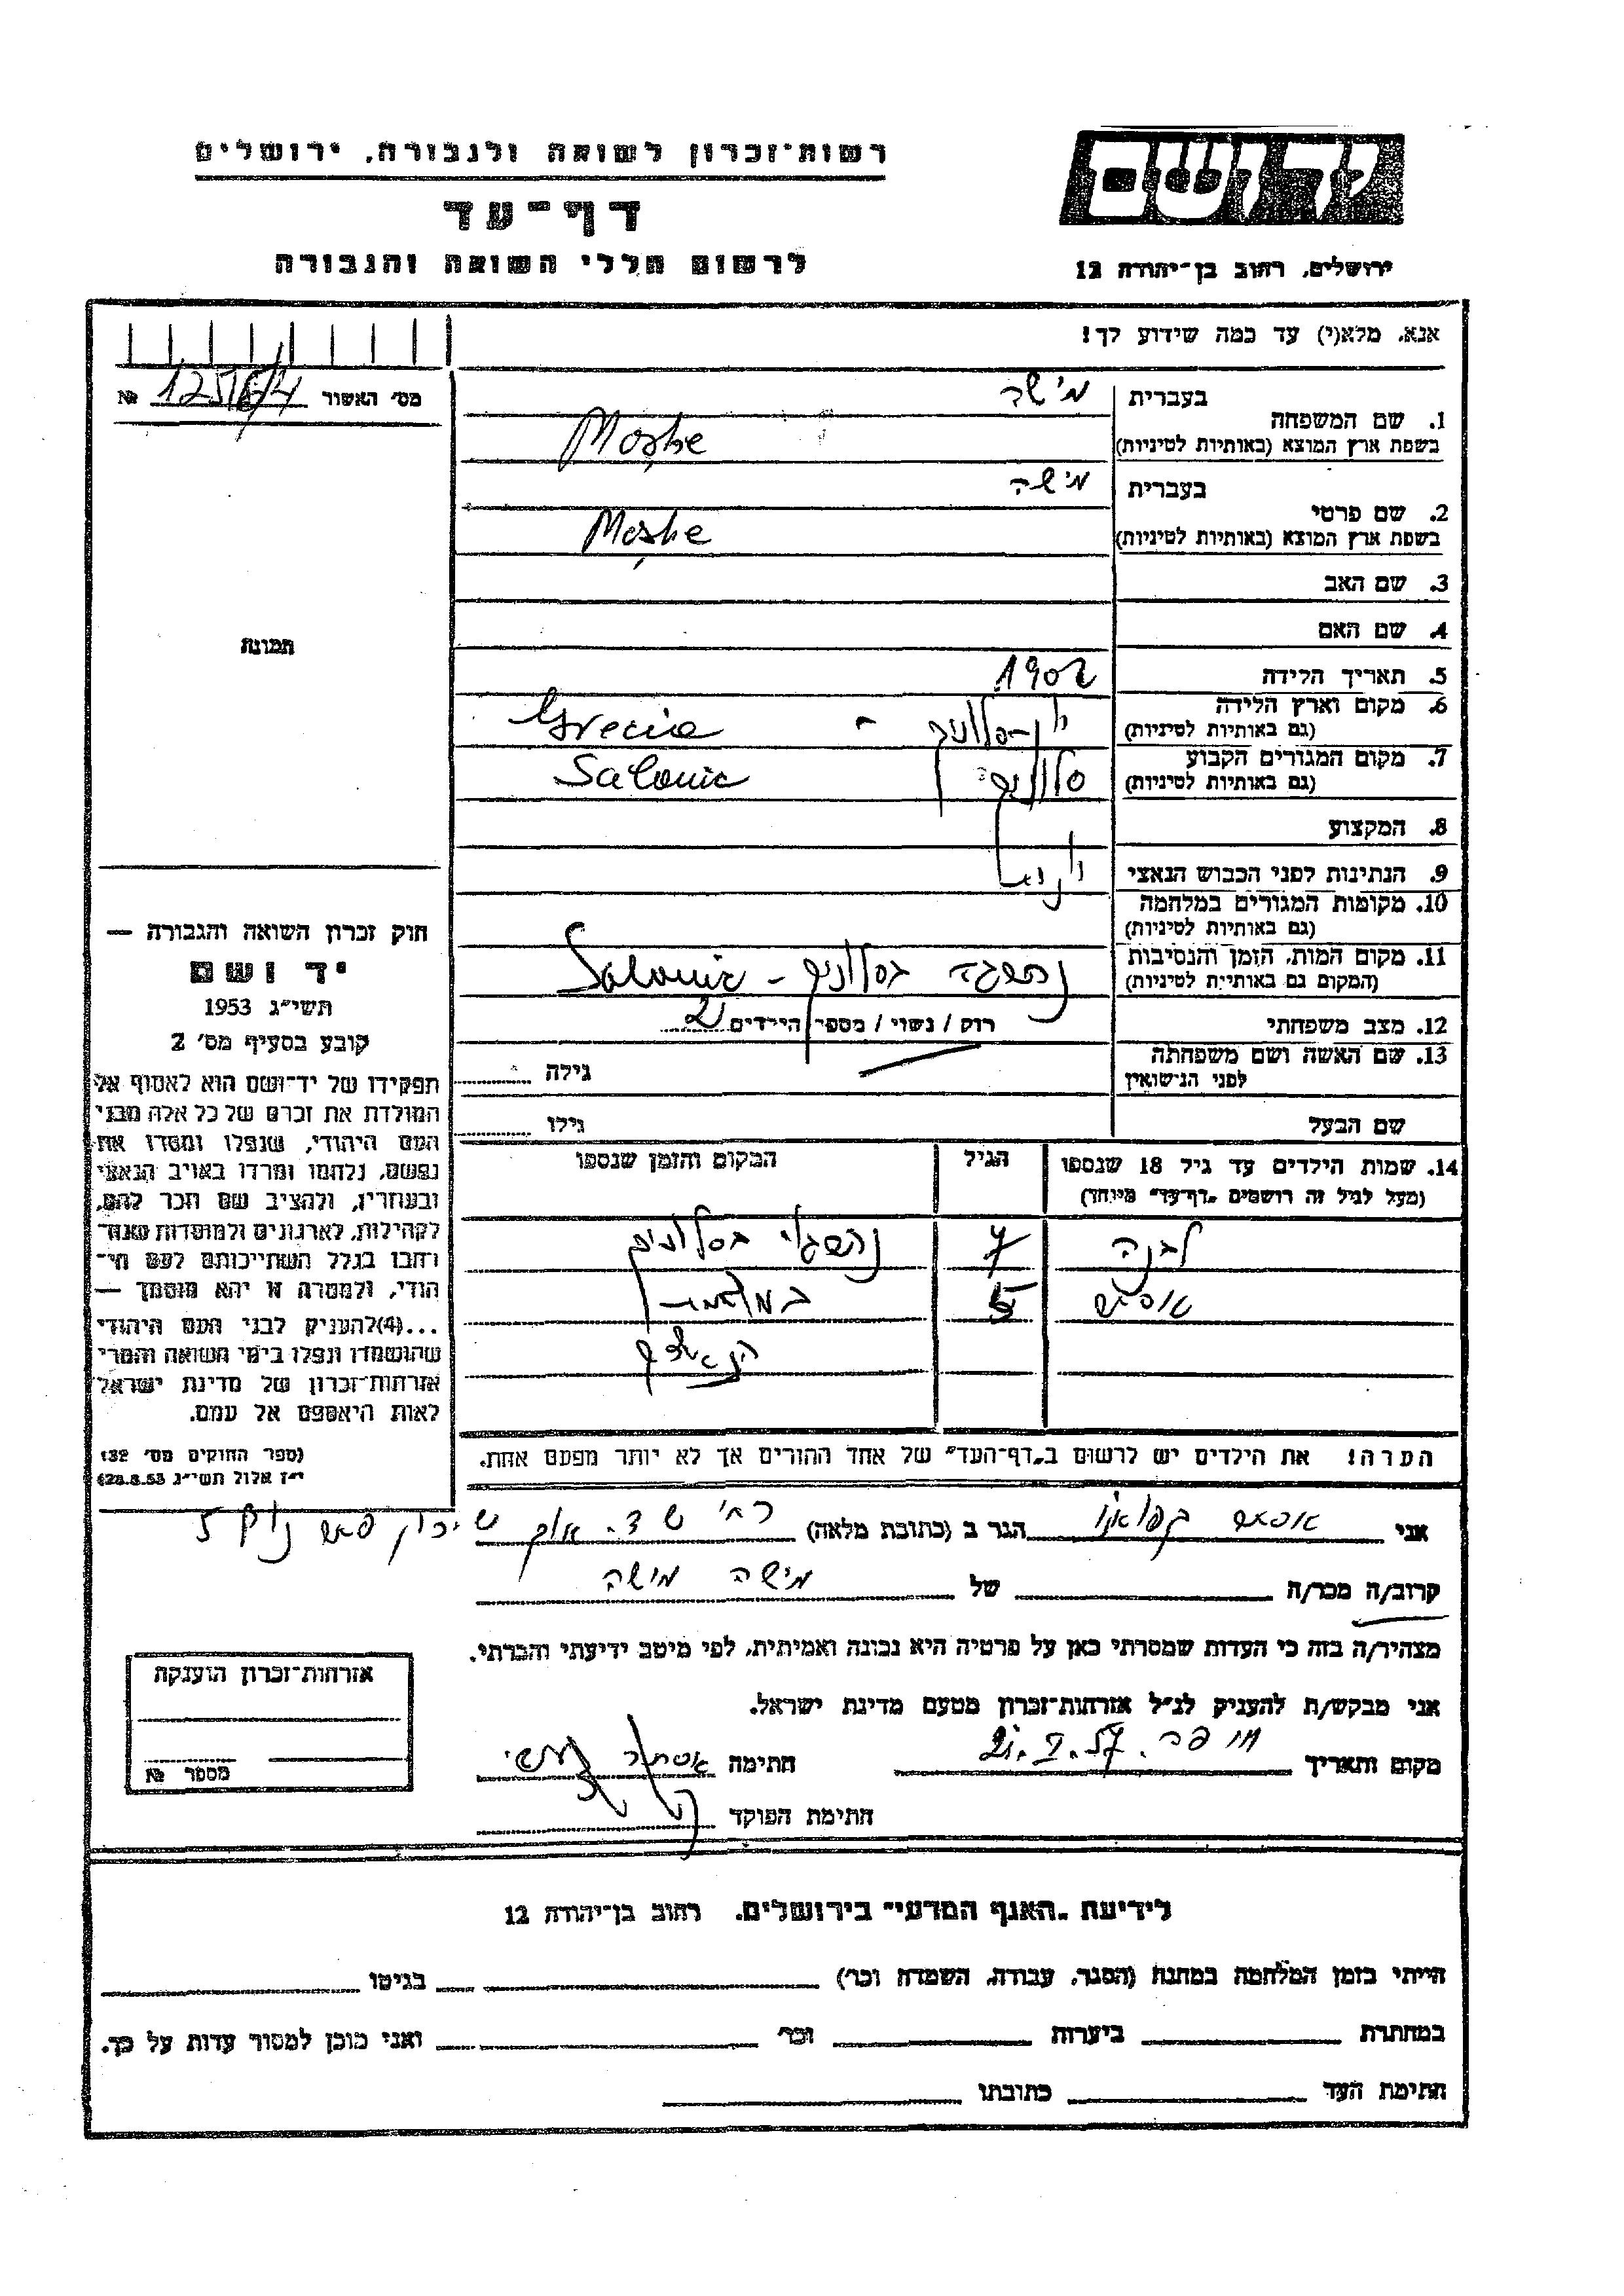 רשות־זכרון לשואה ולגבורה, ירושלים
דף־עד
לרשום חללי השואה והגבורה
יד ושם
ירושלים, רחוב בן־יהודה 12
אנא, מלא(י) עד כמה שידוע לך!
מס׳ האשור №
1. שם המשפחה
בעברית מישה
בשפת ארץ המוצא (באותיות לטיניות) Moshe
2. שם פרטי
בעברית מישה
בשפת ארץ המוצא (באותיות לטיניות) Moshe
3. שם האב
4. שם האם
5. תאריך הלידה 1902
6. מקום וארץ הלידה
(גם באותיות לטיניות) יון־סלוניק - Grecia
7. מקום המגורים הקבוע
(גם באותיות לטיניות) סלוניק Salonic
8. המקצוע
9. הנתינות לפני הכבוש הנאצי
10. מקומות המגורים במלחמה
(גם באותיות לטיניות)
11. מקום המות, הזמן והנסיבות
(המקום גם באותיות לטיניות) נהרגה בסלוניק - Salonic
12. מצב משפחתי רווק / נשוי / מספר הילדים 2
13. שם האשה ושם משפחתה
לפני הנישואין גילה
שם הבעל גילו
14. שמות הילדים עד גיל 18 שנספו
(מעל לגיל זה רושמים „דף־עד״ מיוחד)
הגיל
המקום והזמן שנספו
לבנה 7 נהרגו בסלוניק
5
הערה! את הילדים יש לרשום ב„דף־העד״ של אחד ההורים אך לא יותר מפעם אחת.
תמונה
חוק זכרון השואה והגבורה —
יד ושם
תשי״ג 1953
קובע בסעיף מס׳ 2
תפקידו של יד־ושם הוא לאסוף אל
המולדת את זכרם של כל אלה מבני
העם היהודי, שנפלו ומסרו את
נפשם, נלחמו ומרדו באויב הנאצי
ובעוזריו, ולהציב שם וזכר להם,
לקהילות, לארגונים ולמוסדות שנח־
רבו בגלל השתייכותם לעם הי־
הודי, ולמטרה זו יהא מוסמך —
...(4) להעניק לבני העם היהודי
שהושמדו ונפלו בימי השואה והמרי
אזרחות־זכרון של מדינת ישראל
לאות היאספם אל עמם.
(ספר החוקים מס׳ 132
י״ז אלול תשי״ג 28.8.53)
אני הגר ב (כתובת מלאה)
קרוב/ה מכר/ה של מישה מישה
מצהיר/ה בזה כי העדות שמסרתי כאן על פרטיה היא נכונה ואמיתית, לפי מיטב ידיעתי והכרתי.
אני מבקש/ת להעניק לנ״ל אזרחות־זכרון מטעם מדינת ישראל.
מקום ותאריך חתימה
חתימת הפוקד
אזרחות־זכרון הוענקה
מספר №
לידיעת „האגף המדעי״ בירושלים, רחוב בן־יהודה 12
הייתי בזמן המלחמה במחנה (הסגר, עבודה, השמדה וכו׳) בגיטו
במחתרת ביערות וכו׳ ואני מוכן למסור עדות על כך.
חתימת העד כתובתו